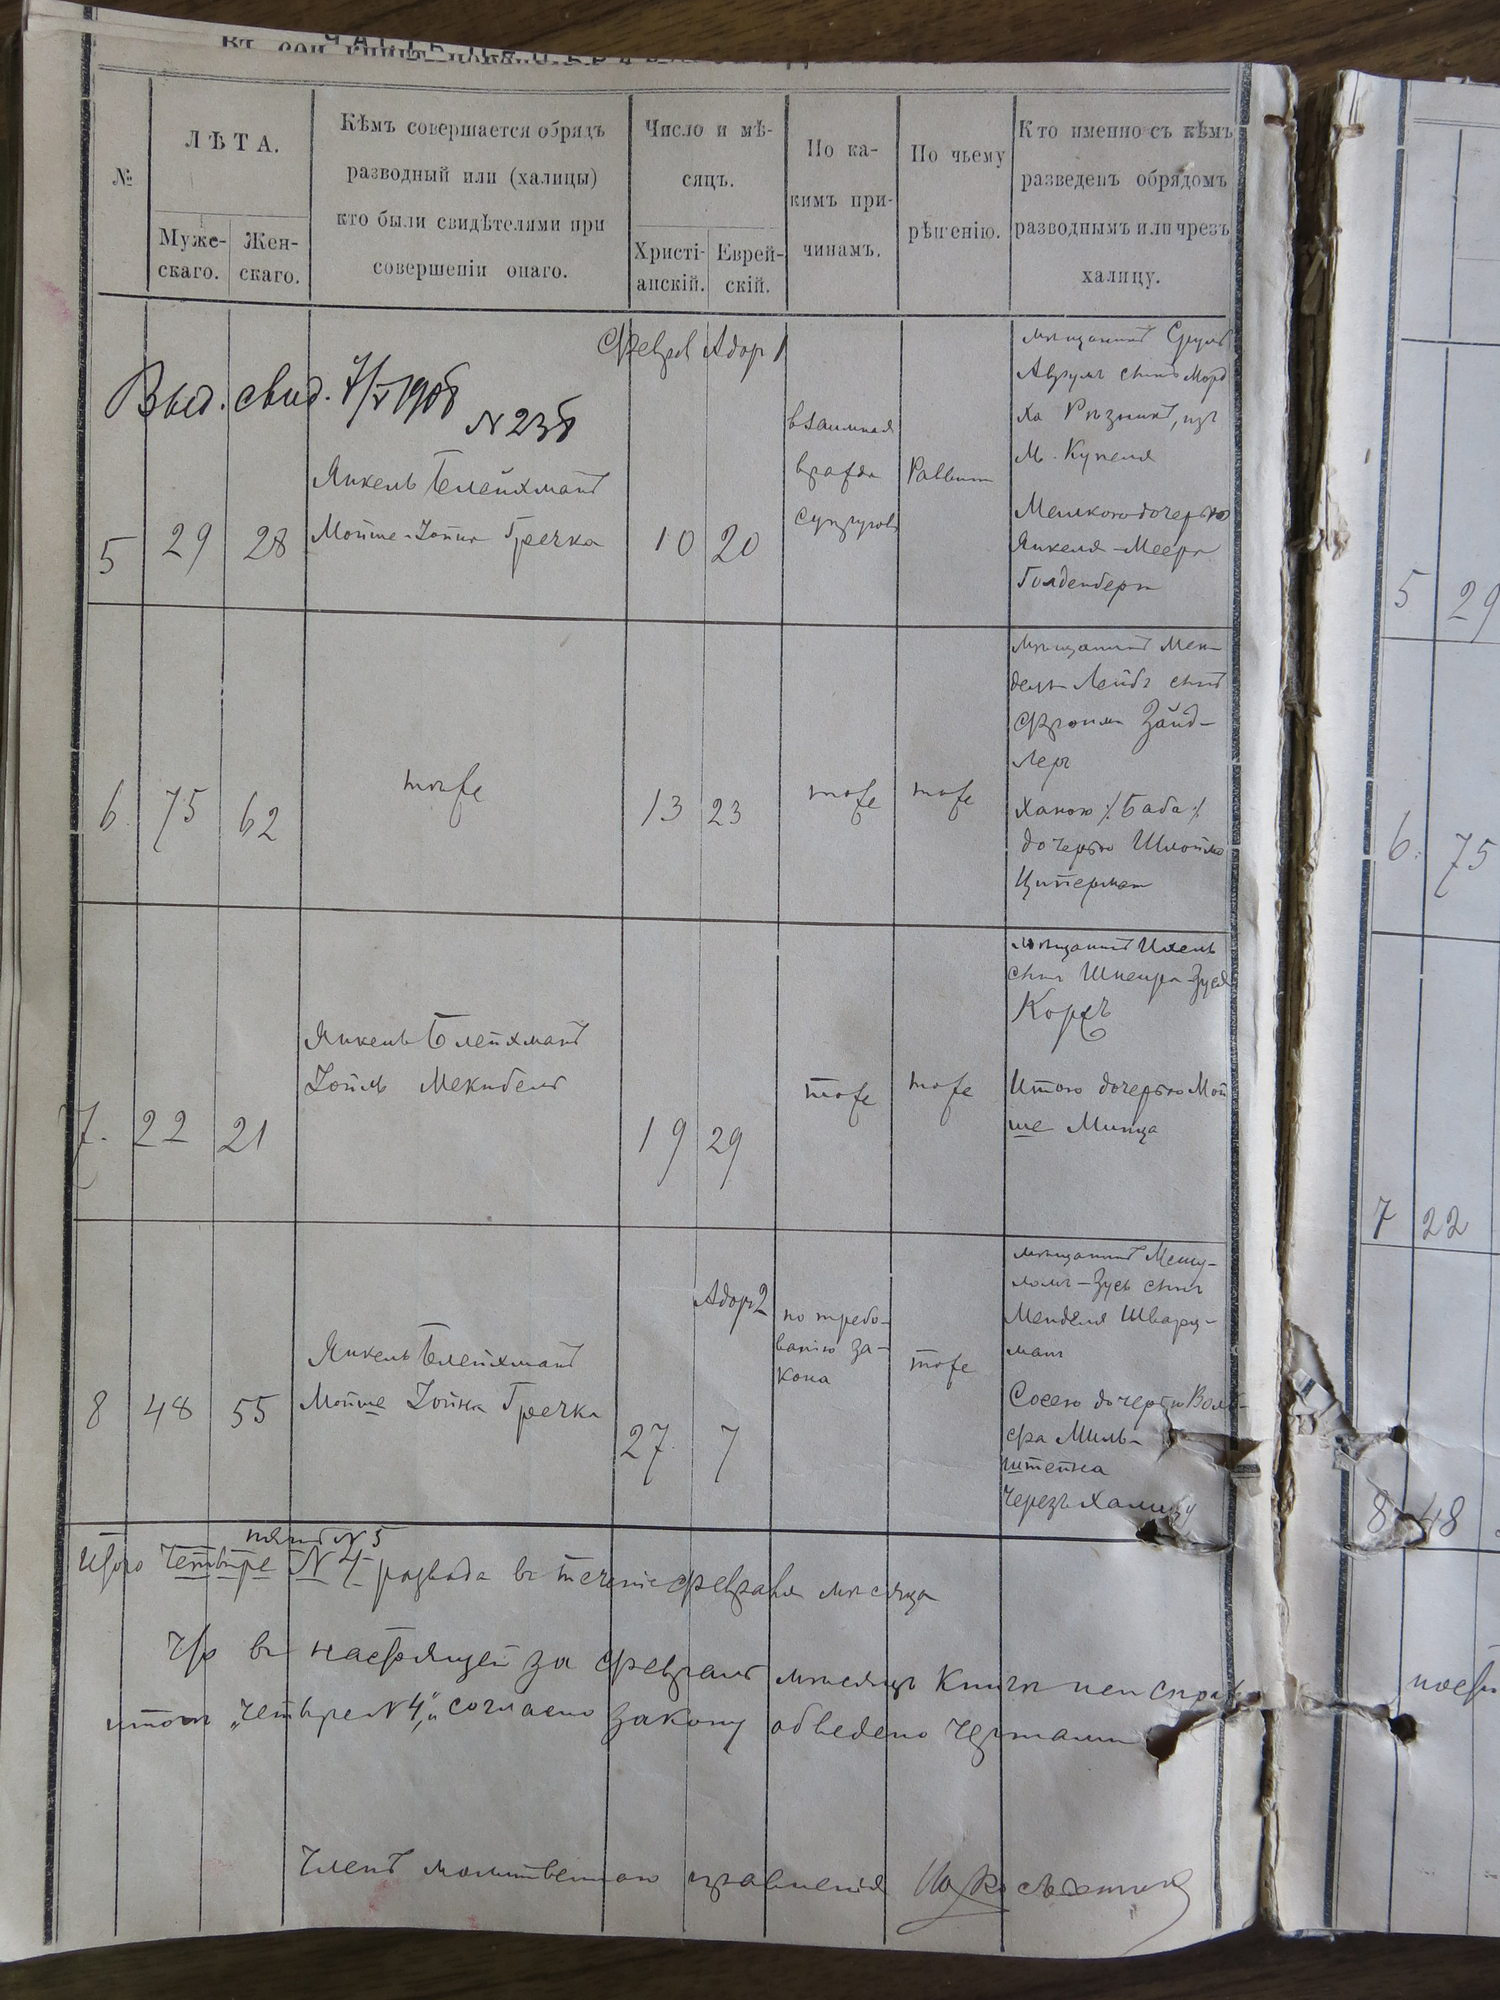 №
ЛѢТА.
Муже-
скаго.
Жен-
скаго.
Кѣмъ совершается обрядъ
разводный или (халицы)
кто были свидѣтелями при
совершеніи онаго.
Число и мѣ-
сяцъ.
Христі-
анскій.
Еврей-
скій.
По ка-
кимъ при-
чинамъ.
По чьему
рѣшенію.
Кто именно съ кѣмъ
разведенъ обрядомъ
разводнымъ или чрезъ
халицу.
Выд. свид.
№ 236
5
29
28
Янкель Блейхманъ
Мойше-Іойна Гречка
Феврал
10
Адоръ 1
20
взаимная
вражда
супруговъ
Раввин
мѣщанинъ Сруль
Аврумъ сынъ Морд
ха Рѣзникъ, изъ
м. Купеля
дочерью
Янкеля-Меера
Голденберга
6
75
62
тоже
13
23
тоже
тоже
мѣщанинъ Мен-
дель Лейбъ сынъ
Фроима Зайд-
леръ
Ханою /. Баба ./
дочерью Шлойма
Циперман
7.
22
21
Янкель Блейхманъ
Іойль
19
29
тоже
тоже
мѣщанинъ Ихель
сынъ Шнеура-Зуся
Корецъ
Итою дочерью Мой
ше Минца
8
48
55
Янкель Блейхманъ
Мойше Іойна Гречка
27
Адоръ 2
7
по требо-
ванію за-
кона
тоже
мѣщанинъ Мешу-
ломъ-Зусь сынъ
Менделя Шварц-
манъ
Сосею дочерью Воль-
фа Миль-
штейна
черезъ халицу
№ 5
Итого четыре № 4 развода въ теченіе февраля мѣсяца
Что въ настоящей за февраль мѣсяцъ книги
итогъ „четыре № 4,“ согласно закону обведено чертами
Членъ молитвеннаго правленія
5
29
6.
75
7
22
8
48